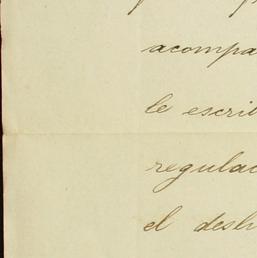 acompa
le escri
regulac
el desl